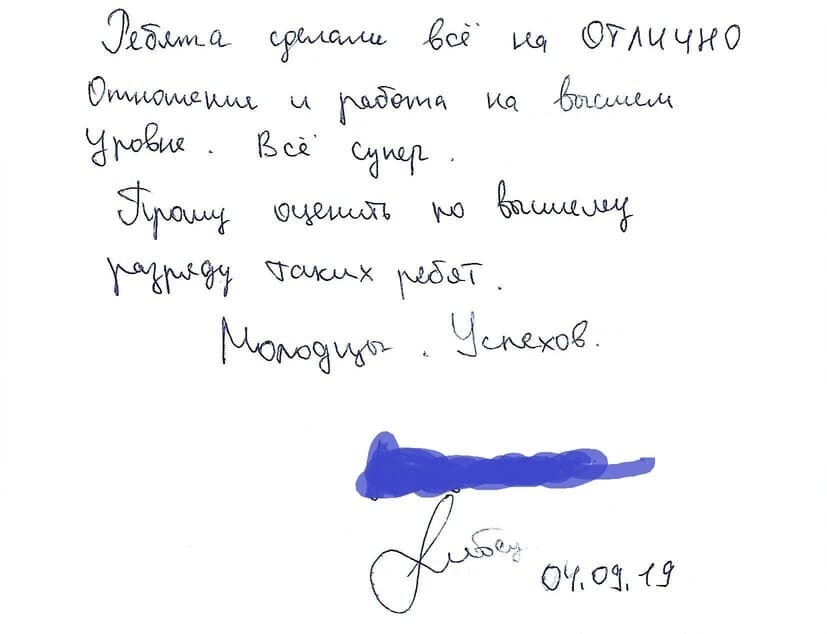 Ребята сделали всё на ОТЛИЧНО
Отношение и работа на высшем
уровне. Всё супер.
Прошу оценить по высшему
разряду таких ребят.
Молодцы. Успехов.
04.09.19